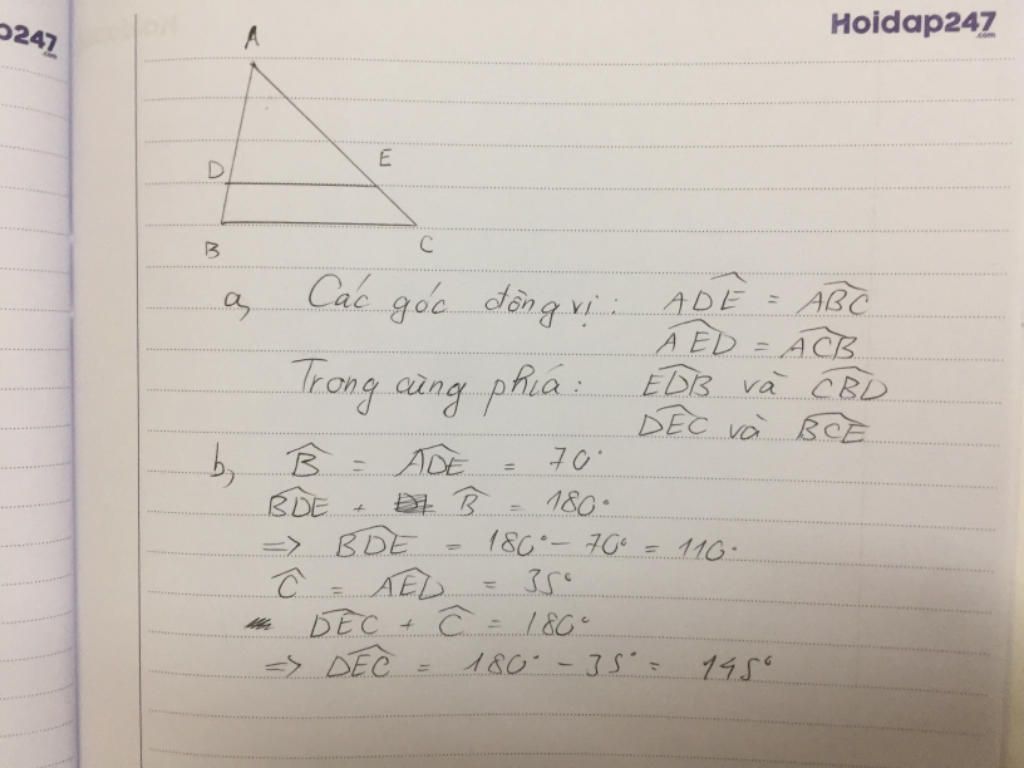 p247
.com
Hoidap247
.com
A
D
E
B
C
a, Các góc đồng vị : ADE = ABC
AED = ACB
Trong cùng phiá : EDB và CBD
DEC và BCE
b, B = ADE = 70°
BDE + B = 180°
=> BDE = 180° - 70° = 110°
C = AED = 35°
DEC + C = 180°
=> DEC = 180° - 35° = 145°